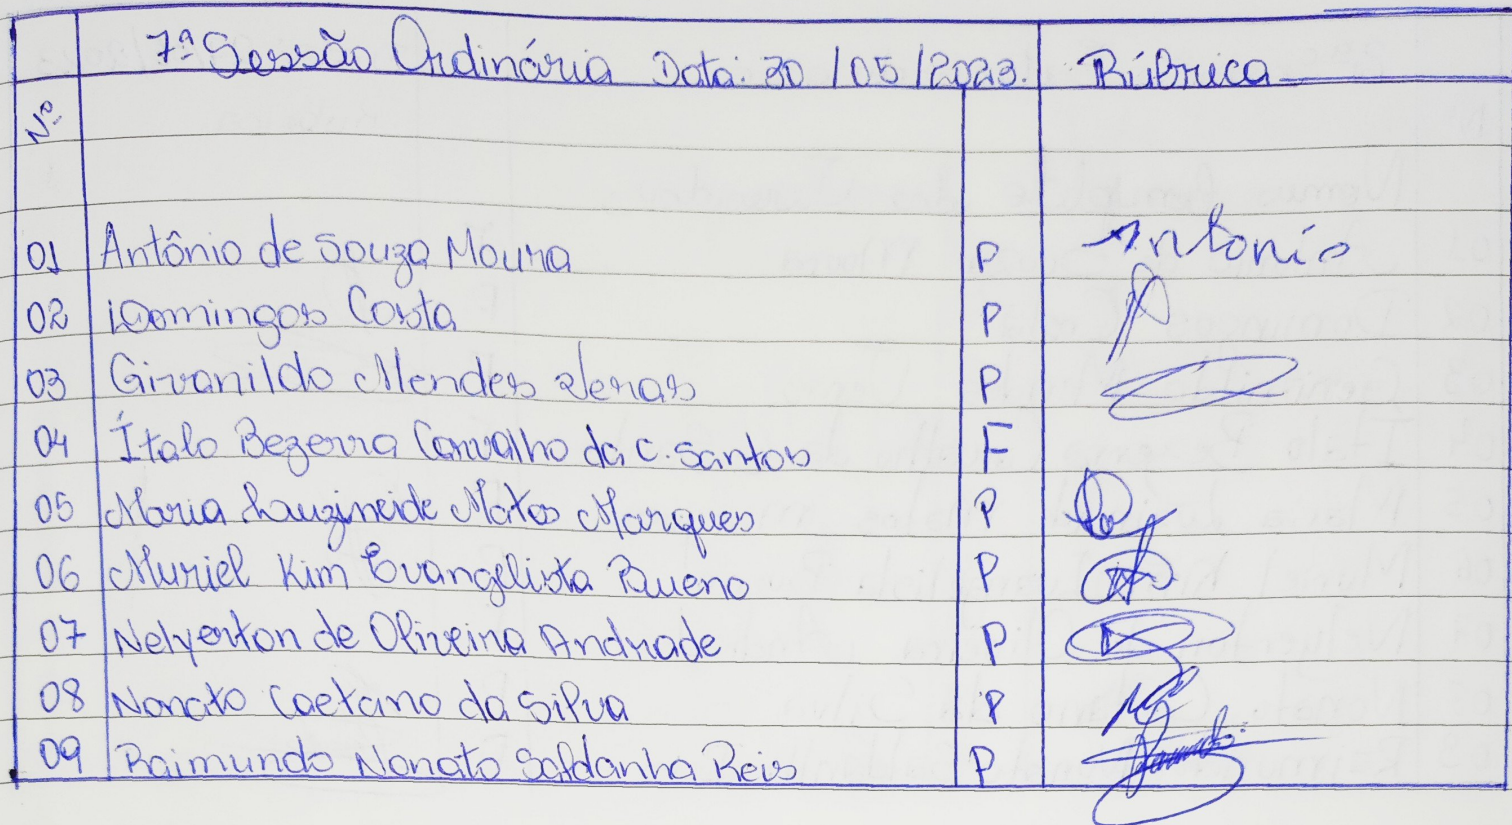 7ª Sessão Ordinária Data: 30/05/2023. Rúbrica
Nº
01 Antônio de Souza Moura P Antonio
02 Domingos Costa P
03 Givanildo Mendes Veras P
04 Ítalo Bezerra Carvalho da C. Santos F
05 Maria Lauzineide Matos Marques P
06 Muriel Kim Evangelista Bueno P
07 Nelyerton de Oliveira Andrade P
08 Nonato Caetano da Silva P
09 Raimundo Nonato Saldanha Reis P